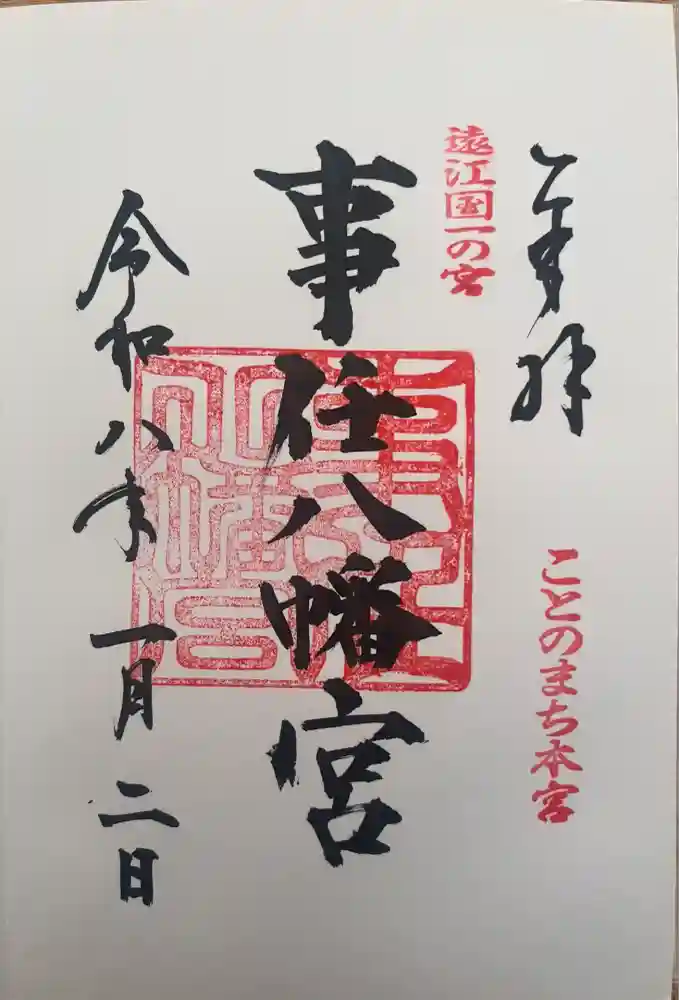 奉拝
ことのまち本宮
遠江国一の宮
事任八幡宮
令和八年一月二日